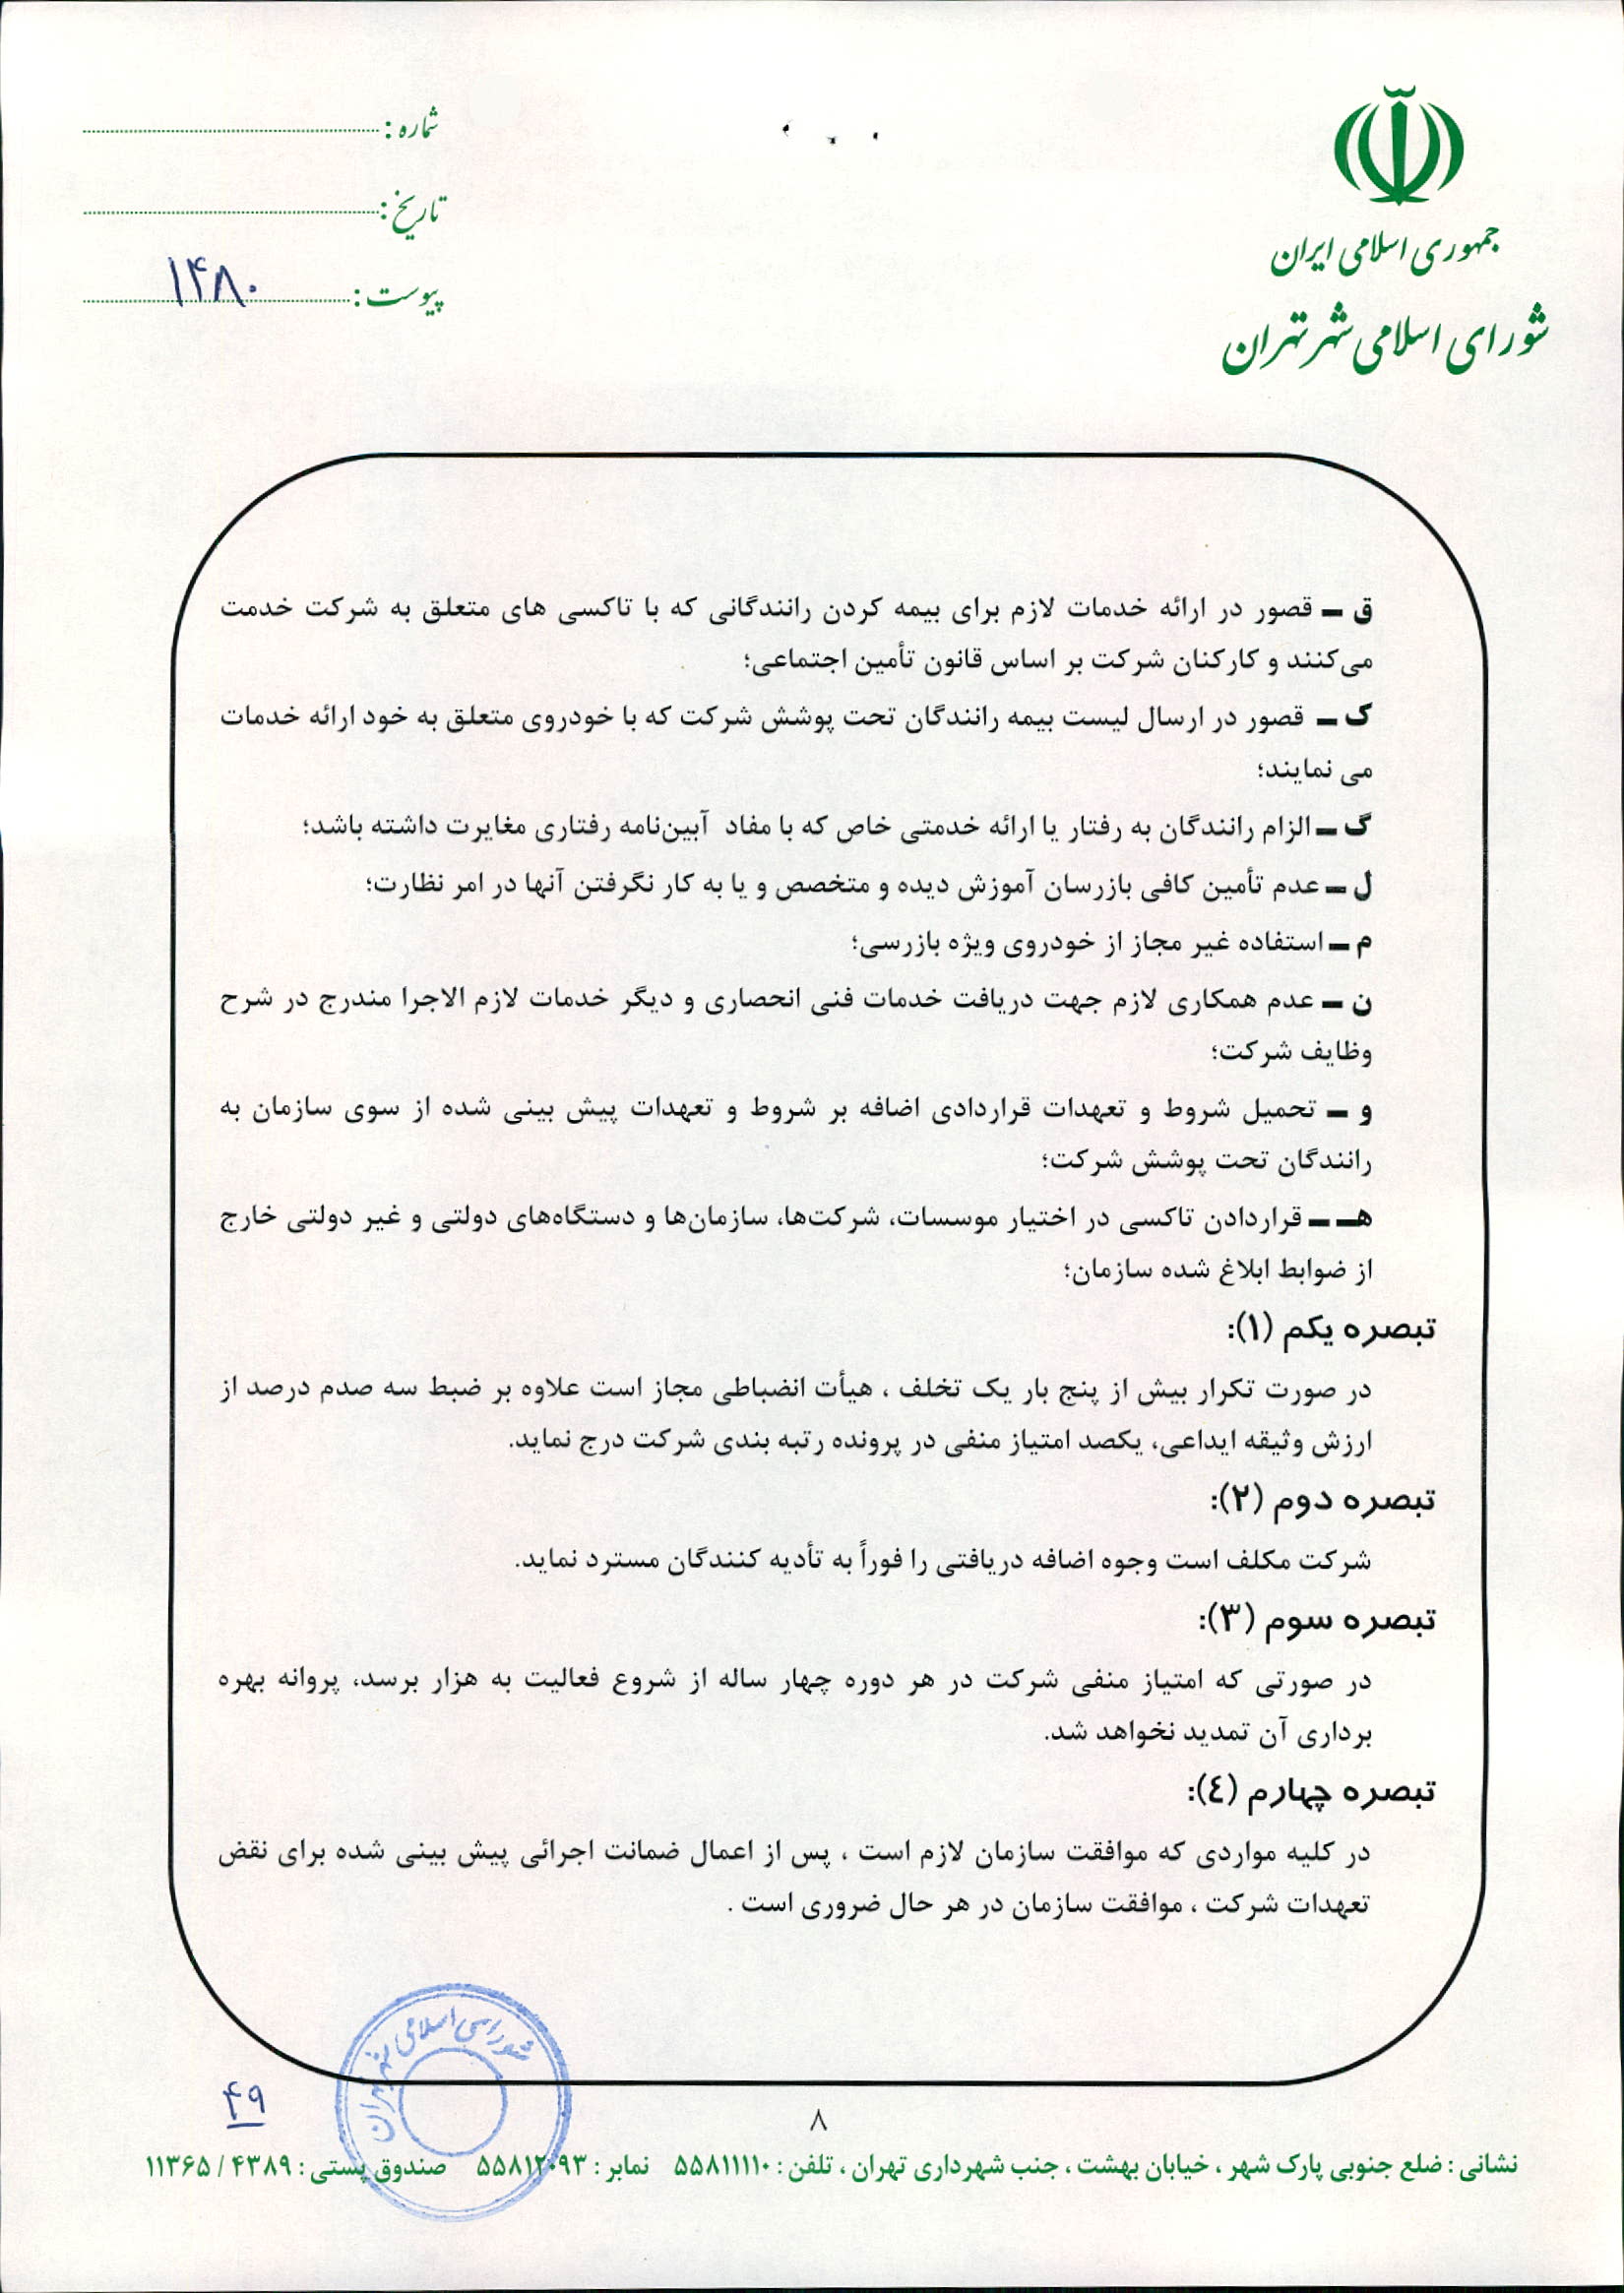 جمهوری اسلامی ایران
شورای اسلامی شهر تهران
شماره :
تاریخ :
پیوست : ۱۴۸۰
ق ـ قصور در ارائه خدمات لازم برای بیمه کردن رانندگانی که با تاکسی های متعلق به شرکت خدمت
می‌کنند و کارکنان شرکت بر اساس قانون تأمین اجتماعی؛
ک ـ قصور در ارسال لیست بیمه رانندگان تحت پوشش شرکت که با خودروی متعلق به خود ارائه خدمات
می نمایند؛
گ ـ الزام رانندگان به رفتار یا ارائه خدمتی خاص که با مفاد آیین‌نامه رفتاری مغایرت داشته باشد؛
ل ـ عدم تأمین کافی بازرسان آموزش دیده و متخصص و یا به کار نگرفتن آنها در امر نظارت؛
م ـ استفاده غیر مجاز از خودروی ویژه بازرسی؛
ن ـ عدم همکاری لازم جهت دریافت خدمات فنی انحصاری و دیگر خدمات لازم الاجرا مندرج در شرح
وظایف شرکت؛
و ـ تحمیل شروط و تعهدات قراردادی اضافه بر شروط و تعهدات پیش بینی شده از سوی سازمان به
رانندگان تحت پوشش شرکت؛
هـ ـ قراردادن تاکسی در اختیار موسسات، شرکت‌ها، سازمان‌ها و دستگاه‌های دولتی و غیر دولتی خارج
از ضوابط ابلاغ شده سازمان؛
تبصره یکم (۱):
در صورت تکرار بیش از پنج بار یک تخلف ، هیأت انضباطی مجاز است علاوه بر ضبط سه صدم درصد از
ارزش وثیقه ایداعی، یکصد امتیاز منفی در پرونده رتبه بندی شرکت درج نماید.
تبصره دوم (۲):
شرکت مکلف است وجوه اضافه دریافتی را فوراً به تأدیه کنندگان مسترد نماید.
تبصره سوم (۳):
در صورتی که امتیاز منفی شرکت در هر دوره چهار ساله از شروع فعالیت به هزار برسد، پروانه بهره
برداری آن تمدید نخواهد شد.
تبصره چهارم (٤):
در کلیه مواردی که موافقت سازمان لازم است ، پس از اعمال ضمانت اجرائی پیش بینی شده برای نقض
تعهدات شرکت ، موافقت سازمان در هر حال ضروری است .
شورای اسلامی شهر تهران
۴۹
۸
نشانی : ضلع جنوبی پارک شهر ، خیابان بهشت ، جنب شهرداری تهران ، تلفن : ۵۵۸۱۱۱۱۰ نمابر : ۵۵۸۱۲۰۹۳ صندوق پستی : ۴۳۸۹ / ۱۱۳۶۵